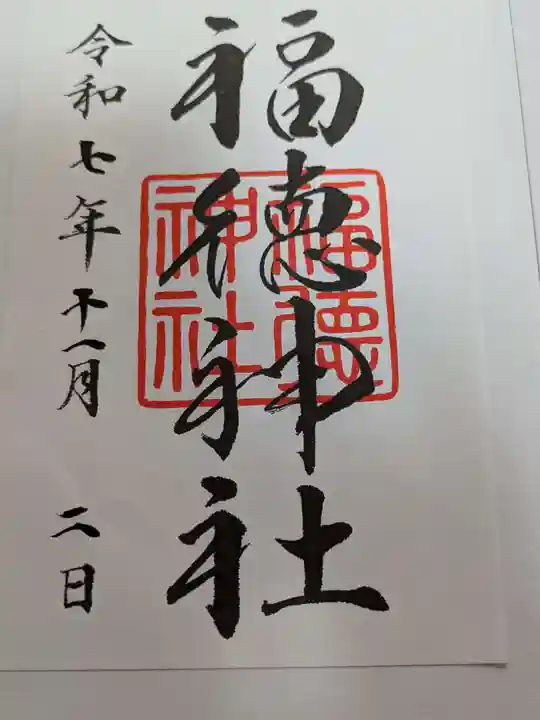 福徳神社
福徳神社
令和七年十一月 二日